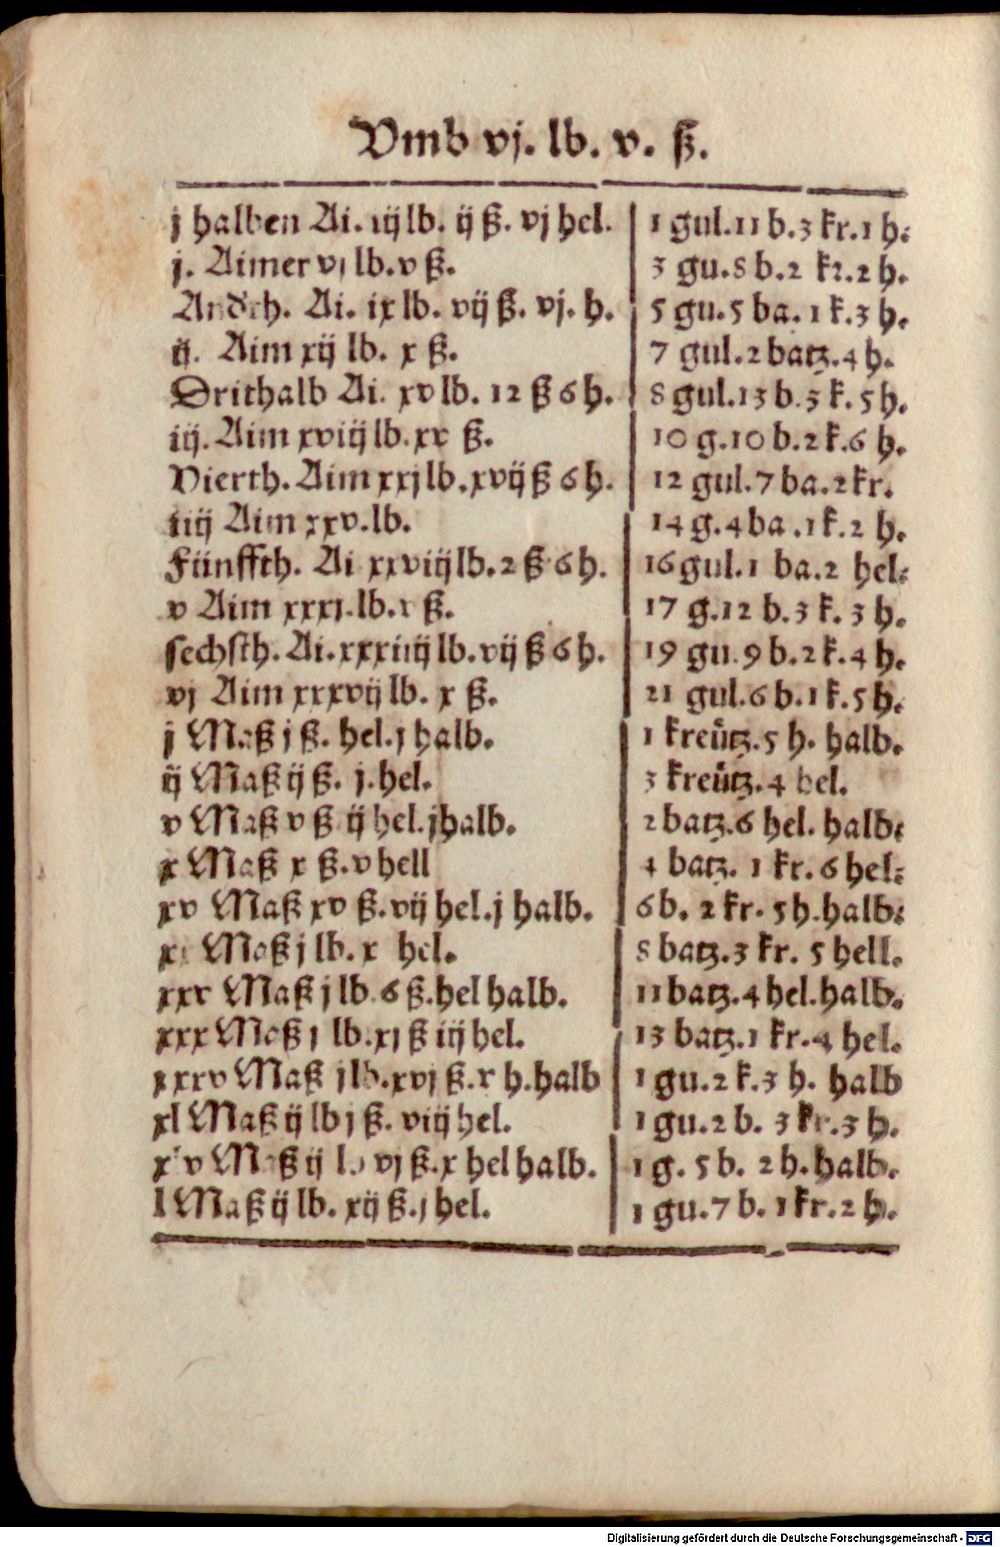 Vmb vj. lb. v. ß.
j halben Ai. iij lb. ij ß. vj hel. 1 gul. 11 b. 3 kr. 1 h.
j. Aimer vj lb. v ß. 3 gu. 8 b. 2 kr. 2 h.
Andth. Ai. ix lb. vij ß. vj. h. 5 gu. 5 ba. 1 k. 3 h.
ij. Aim xij lb. x ß. 7 gul. 2 batz. 4 h.
Drithalb Ai. xv lb. 12 ß 6 h. 8 gul. 13 b. 3 k. 5 h.
iij. Aim xviij lb. xv ß. 10 g. 10 b. 2 k. 6 h.
Vierth. Aim xxj lb. xvij ß 6 h. 12 gul. 7 ba. 2 kr.
iiij Aim xxv. lb. 14 g. 4 ba. 1 k. 2 h.
Fünffth. Ai xxviij lb. 2 ß 6 h. 16 gul. 1 ba. 2 hel:
v Aim xxxj. lb. v ß. 17 g. 12 b. 3 k. 3 h.
sechsth. Ai. xxxiiij lb. vij ß 6 h. 19 gu. 9 b. 2 k. 4 h.
vj Aim xxxvij lb. x ß. 21 gul. 6 b. 1 k. 5 h.
j Maß j ß. hel. j halb. 1 kreütz. 5 h. halb.
ij Maß ij ß. j. hel. 3 kreütz. 4 hel.
v Maß v ß ij hel. j halb. 2 batz. 6 hel. halb:
x Maß x ß. v hell 4 batz. 1 kr. 6 hel:
xv Maß xv ß. vij hel. j halb. 6 b. 2 kr. 5 h. halb:
Maß j lb. x hel. 8 batz. 3 kr. 5 hell.
xxv Maß j lb. 6 ß. hel halb. 11 batz. 4 hel. halb.
xxx Maß j lb. xj ß iij hel. 13 batz. 1 kr. 4 hel.
xxxv Maß j lb. xvj ß. v h. halb 1 gu. 2 k. 3 h. halb
xl Maß ij lb j ß. viij hel. 1 gu. 2 b. 3 kr. 3 h.
xlv Maß ij lb vj ß. x hel halb. 1 g. 5 b. 2 h. halb.
l Maß ij lb. xij ß. j hel. 1 gu. 7 b. 1 kr. 2 h.
Digitalisierung gefördert durch die Deutsche Forschungsgemeinschaft - DFG